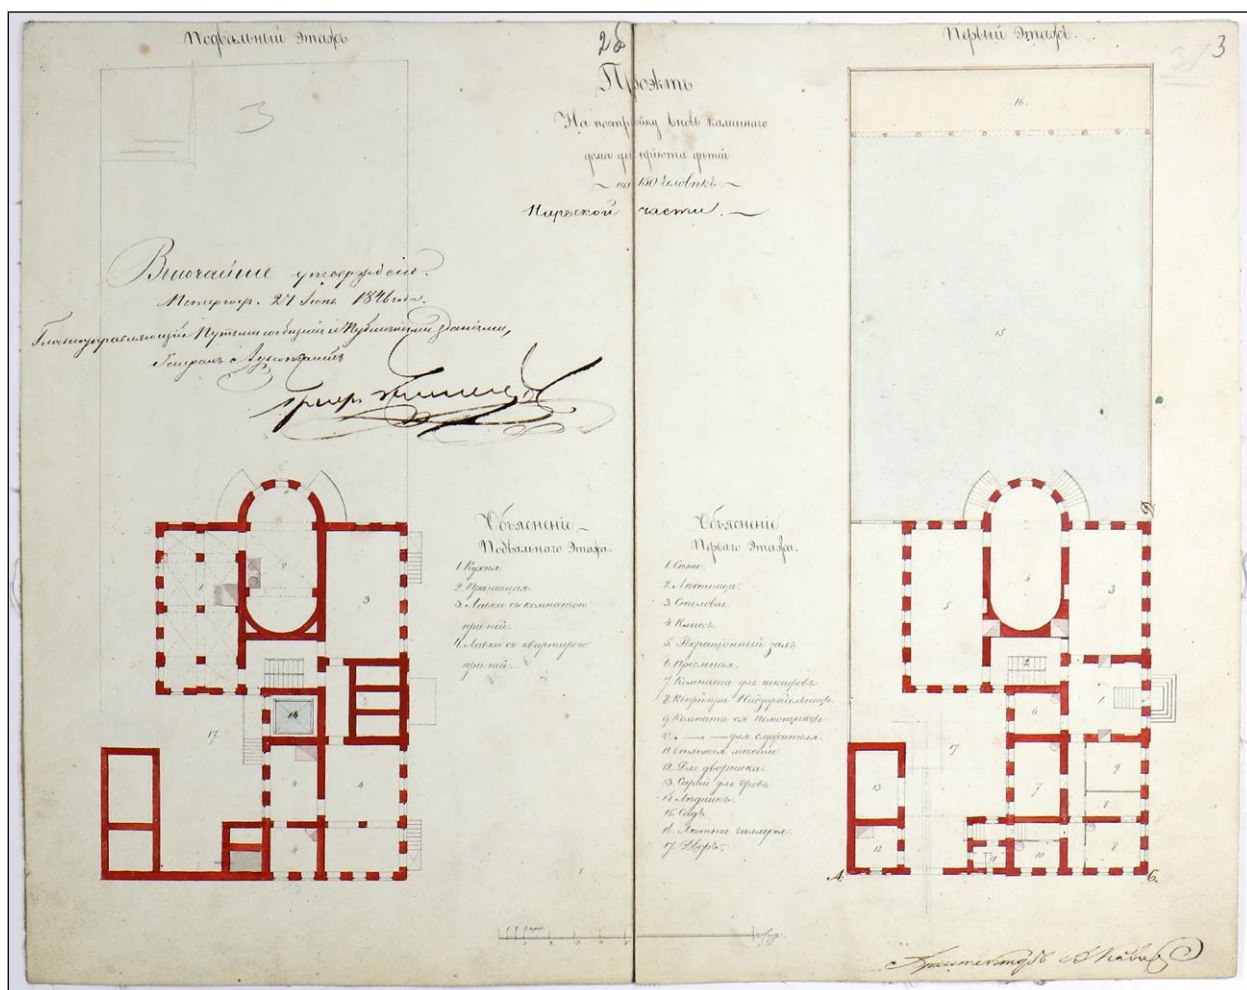 Подвальный этажъ
2б
Первый этажъ.
3
Проэктъ
На постройку вновь каминнаго
дома для приюта дѣтей
на 150 человѣкъ
Нарвской части.
3
Высочайше утвержденъ.
Петергоф. 21 Іюня 1846 года.
Главноуправляющій Путями сообщенія и Публичными зданіями,
Генералъ Адъютантъ
Объясненіе
Подвальнаго Этажа.
1 Кухня.
2 Прачешная.
3 Лавка съ комнатою
при ней.
4 Лавка съ квартирою
при ней.
Объясненіе
Перваго Этажа.
1 Сѣни.
2 Лѣстница.
3 Столовая.
4 Классъ.
5 Рекреационный залъ
6 Приемная.
7 Комната для шкафовъ
8 Квартира Надзирательницы
9 Комната ея Помощницы
для служителя.
11 Отхожія мѣста.
12 Для дворника.
13 Сарай для дровъ
14 Ледникъ.
15 Садъ.
16 галлерея.
17 Дворъ.
1
2
3
14
17
4
4
4
16.
15
5
4
3
2
6
1
7
7
9
8
8
13
12
11
10
А.
Б.
Архитекторъ